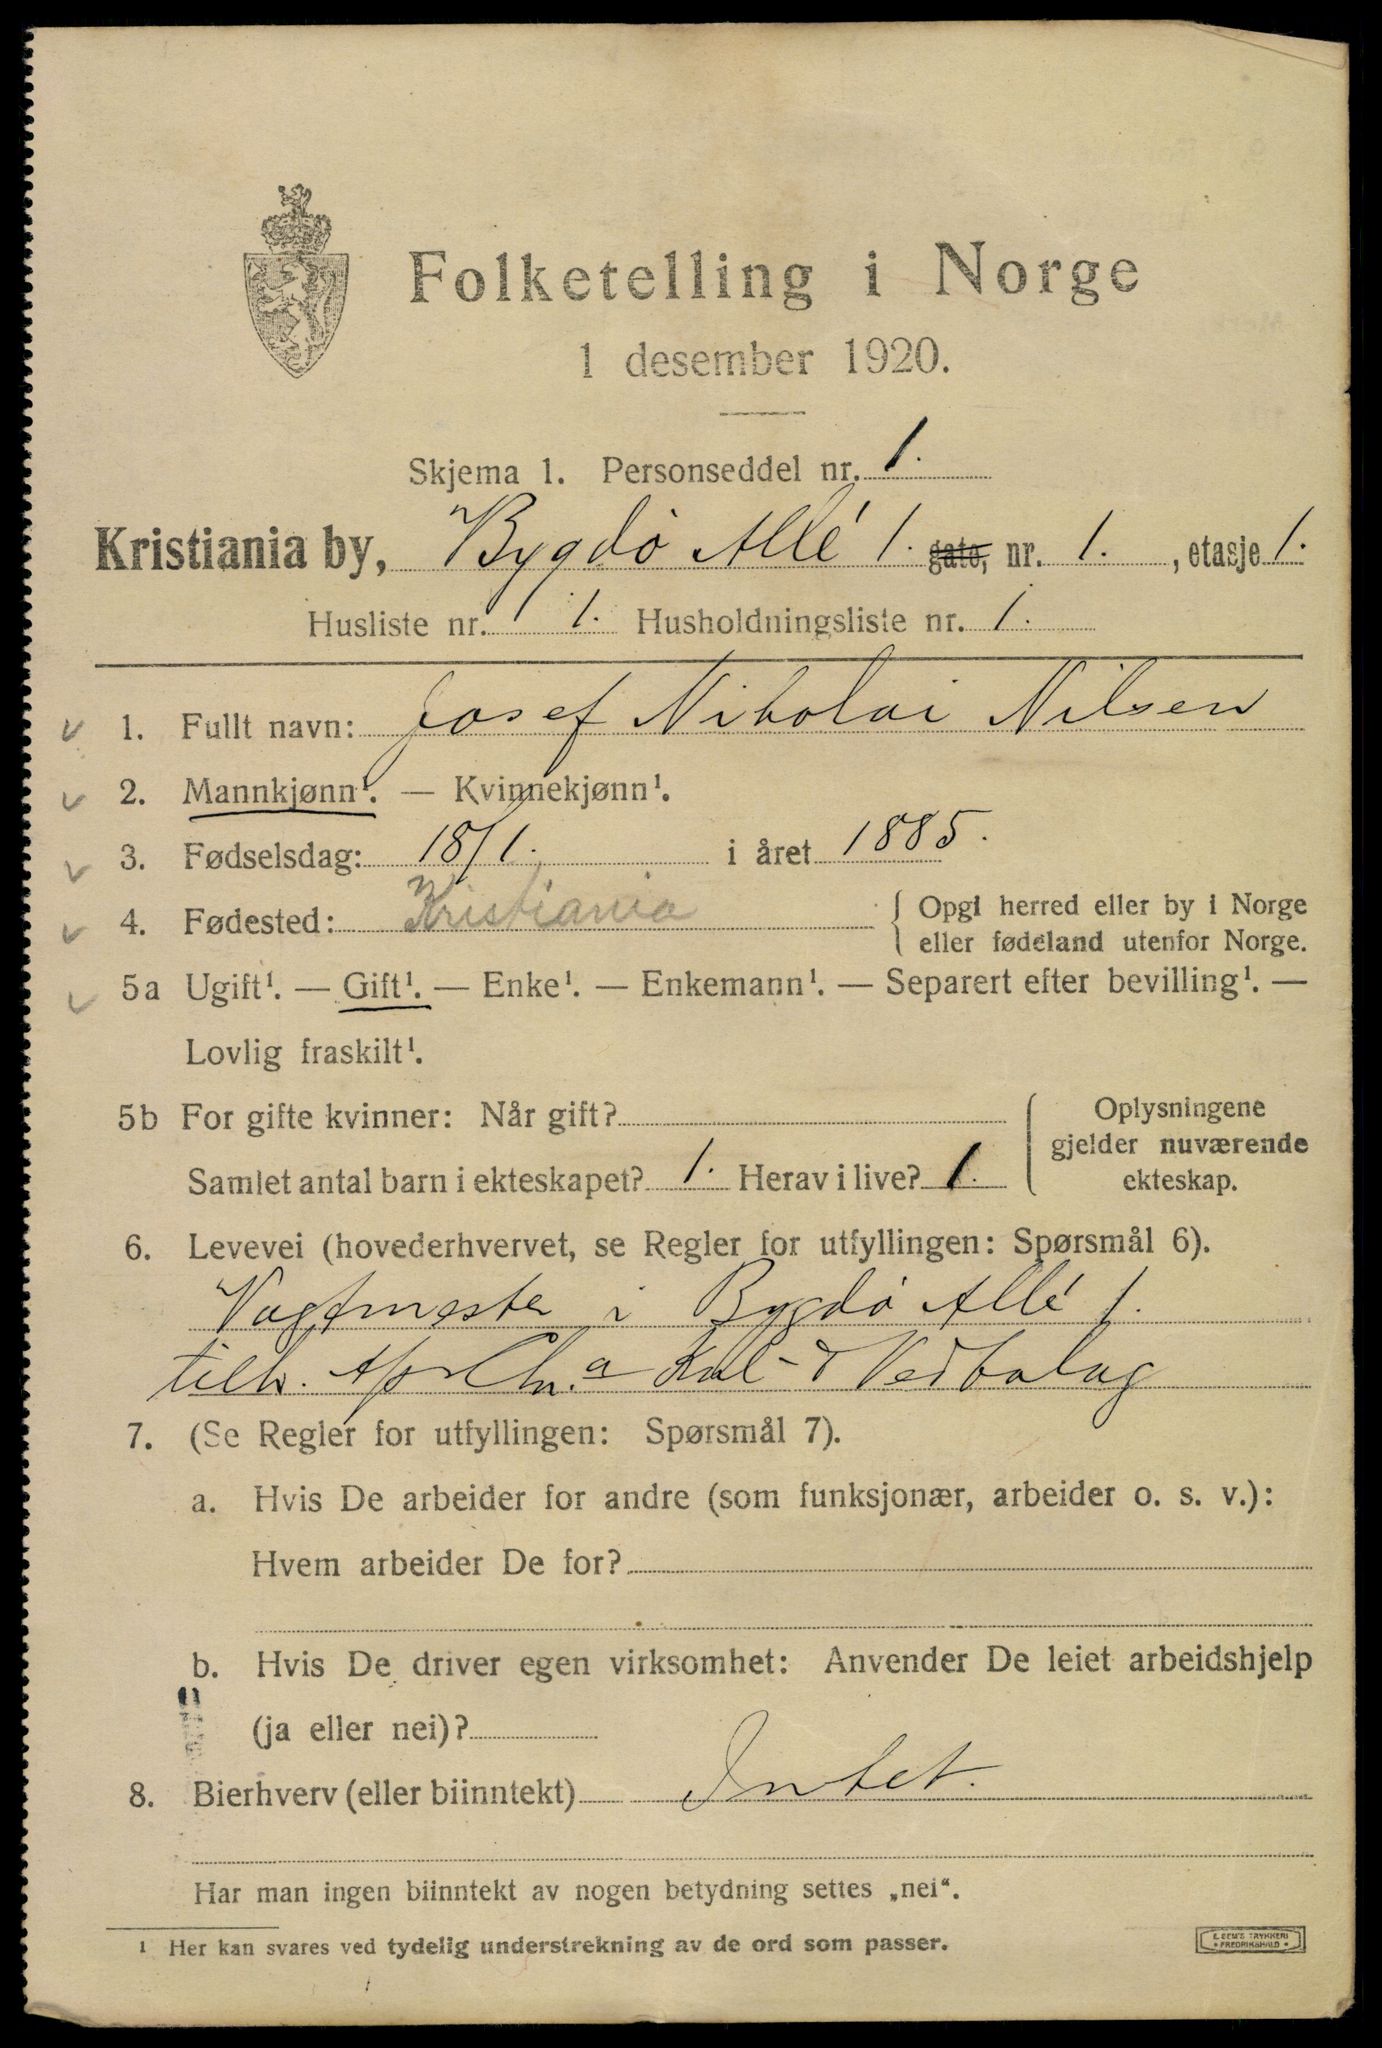 Folketelling i Norge
1 desember 1920.
Skjema 1. Personseddel nr. 1.
Kristiania by, Bygdö Allé 1. gate, nr. 1., etasje 1.
Husliste nr. 1. Husholdningsliste nr. 1.
1. Fullt navn: Josef Nikolai Nilsen
2. Mannkjønn¹. — Kvinnekjønn¹.
3. Fødselsdag: 18/1. i året 1885.
4. Fødested: Kristiania { Opgi herred eller by i Norge
eller fødeland utenfor Norge.
5a Ugift¹. — Gift¹. — Enke¹. — Enkemann¹. — Separert efter bevilling¹. —
Lovlig fraskilt¹.
5b For gifte kvinner: Når gift?
Samlet antal barn i ekteskapet? 1. Herav i live? 1.
Oplysningene
gjelder nuværende
ekteskap.
6. Levevei (hovederhvervet, se Regler for utfyllingen: Spørsmål 6).
Vagtmester i Bygdö Allé 1.
tilh. Kul- & Vedbolag
7. (Se Regler for utfyllingen: Spørsmål 7).
a. Hvis De arbeider for andre (som funksjonær, arbeider o. s. v.):
Hvem arbeider De for?
b. Hvis De driver egen virksomhet: Anvender De leiet arbeidshjelp
(ja eller nei)?
8. Bierhverv (eller biinntekt) Intet.
Har man ingen biinntekt av nogen betydning settes „nei“.
¹ Her kan svares ved tydelig understrekning av de ord som passer.
E. SEM'S TRYKKERI
• FREDRIKSHALD •